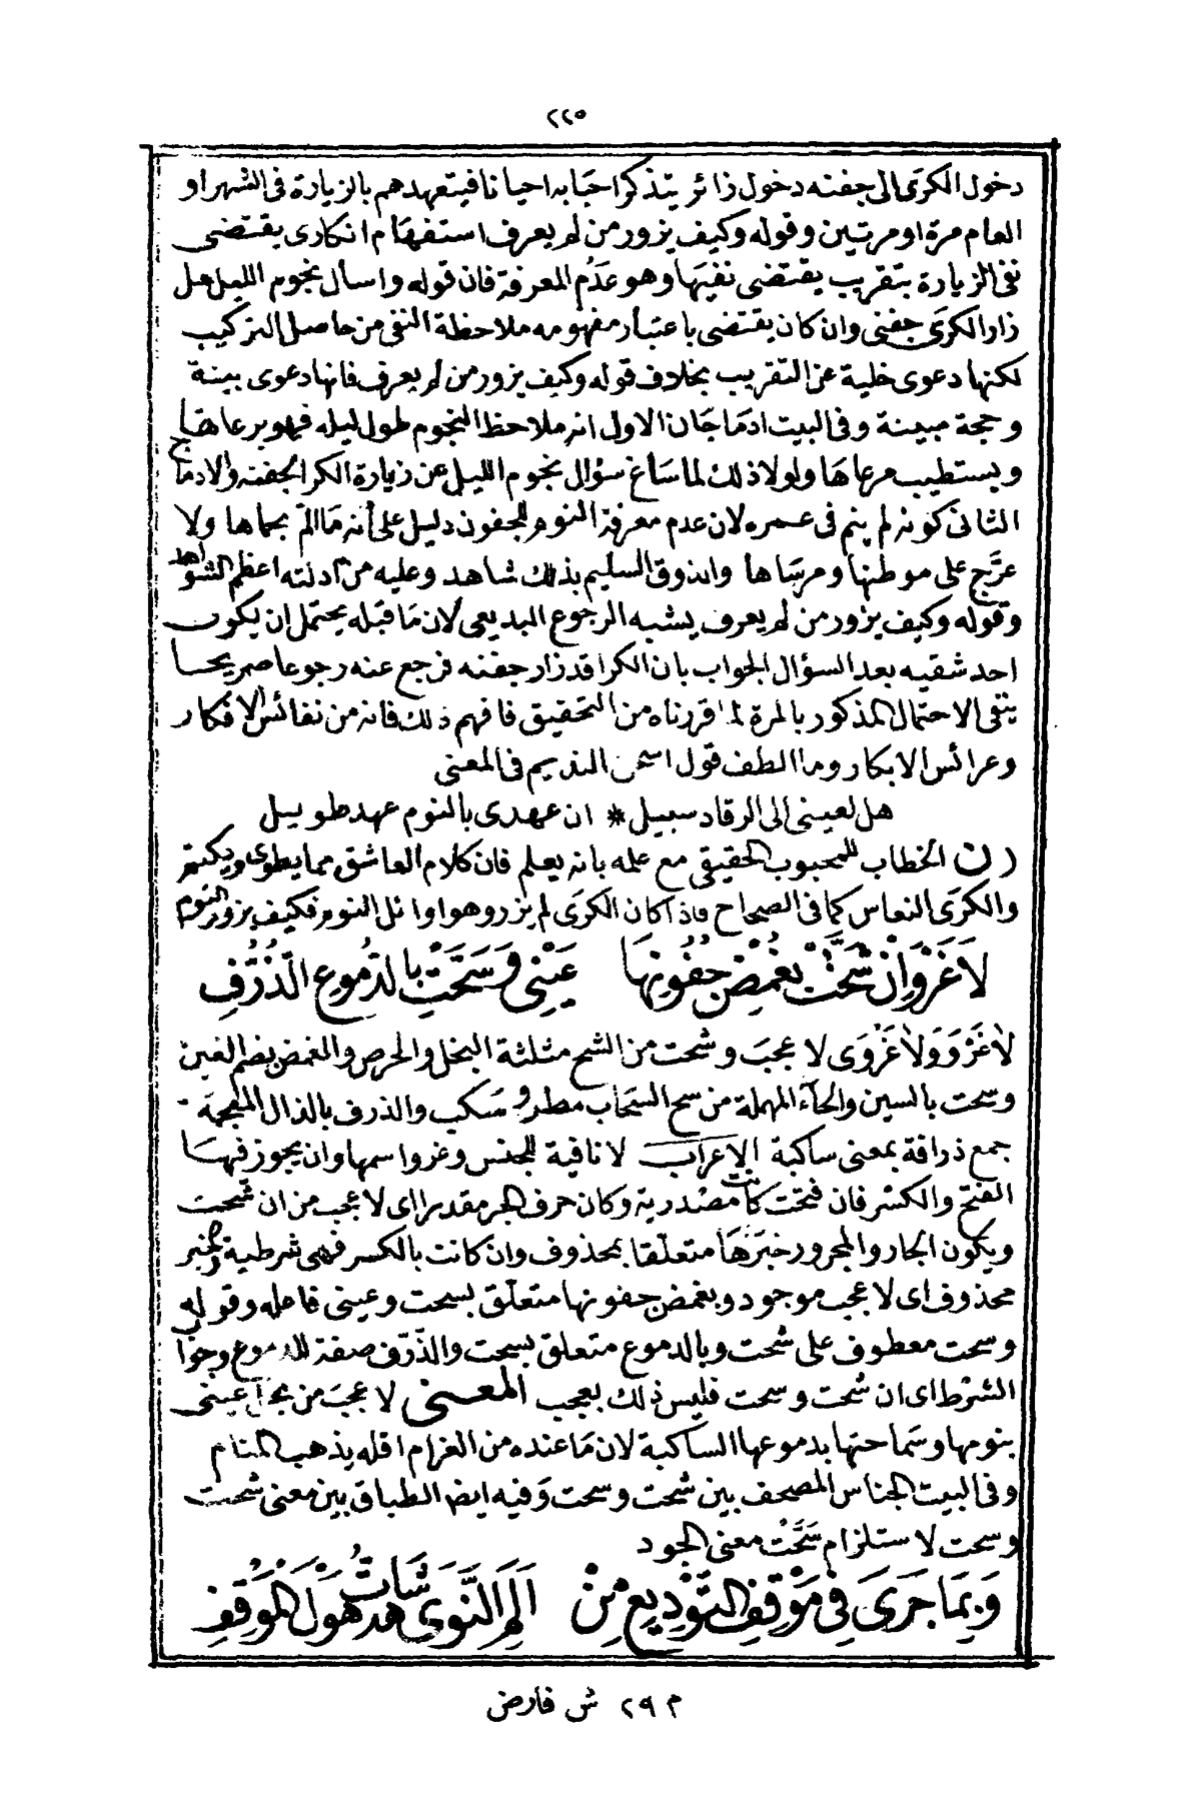 ٢٢٥
دخول الكرى الى جفنه دخول زائر يتذكر احبابه احيانا فيتعهدهم بالزيارة فى الشهر او
العام مرة او مرتين وقوله وكيف يزور من لم يعرف استفهام انكارى يقتضى
نفى الزيارة بتقريب يقتضى نفيها وهو عدم المعرفة فان قوله واسأل نجوم الليل هل
زار الكرى جفنى وان كان يقتضى باعتبار مفهومه ملاحظة النفى من حاصل التركيب
لكنها دعوى خلية عن التقريب بخلاف قوله وكيف يزور من لم يعرف فانها دعوى بينة
وحجة مبينة وفى البيت ادماجان الاول انه ملاحظ النجوم طول ليله فهو يرعاها
ويستطيب مرعاها ولولا ذلك لما ساغ سؤال نجوم الليل عن زيارة الكرا لجفنه والادماج
الثانى كونه لم ينم فى عمره لان عدم معرفة النوم للجفون دليل على أنه ما الم بحماها ولا
عرّج على موطنها ومرساها والذوق السليم بذلك شاهد وعليه من ادلته اعظم الشواهد
وقوله وكيف يزور من لم يعرف يشبه الرجوع البديعى لان ما قبله يحتمل ان يكون
احد شقيه بعد السؤال الجواب بان الكرا قد زار جفنه فرجع عنه رجوعا صريحا
ينفى الاحتمال المذكور بالمرة لما قررناه من التحقيق فافهم ذلك فانه من نفائس الافكار
وعرائس الابكار وما الطف قول اسحق النديم فى المعنى
هل لعينى الى الرقاد سبيل * ان عهدى بالنوم عهد طويل
(ن الخطاب للمحبوب الحقيقى مع علمه بانه يعلم فان كلام العاشق مما يطوى ويكتم
والكرى النعاس كما فى الصحاح فاذا كان الكرى لم يزر وهو اوائل النوم فكيف يزور النوم
لَا غَرْوَ اِنْ شَحَّتْ بِغُمْضِ جُفُونِهَا عَيْنِى وَسَحَّتْ بِالدُّمُوعِ الذُّرَّفِ
لا غَرْوَ ولا غَرْوَى لا عجبَ وشحت من الشح مثلثة البخل والحرص والغمض بضم الغين
وسحت بالسين والحاء المهملة من سح السحاب مطر وسكب والذرف بالذال المعجمة
جمع ذرافة بمعنى ساكبة الاعراب لا نافية للجنس وغرو اسمها وان يجوز فيها
الفتح والكسر فان فتحت كانت مصدرية وكان حرف الجر مقدرا اى لا عجب من ان شحت
ويكون الجار والمجرور خبرها متعلقا بمحذوف وان كانت بالكسر فهى شرطية والخبر
محذوف اى لا عجب موجود وبغمض جفونها متعلّق بسحت وعينى فاعله وقوله
وسحت معطوف على شحت وبالدموع متعلق بسحت والذّرّف صفة للدموع وجواب
الشرط اى ان شحت وسحت فليس ذلك بعجب المعنى لا عجبَ من بخل عينى
بنومها وسماحتها بدموعها الساكبة لان ما عنده من الغرام اقله يذهب المنام
وفى البيت الجناس المصحف بين شحت وسحت وفيه ايضا الطباق بين معنى شحت
وسحت لاستلزام سَحَّت معنى الجود
وَبِمَا جَرَى فِى مَوْقِفِ التَّوْدِيعِ مِنْ اَلَمِ النَّوَى شَاهَدْتُ هَوْلَ المَوْقِفِ
م ٢٩ ش فارض